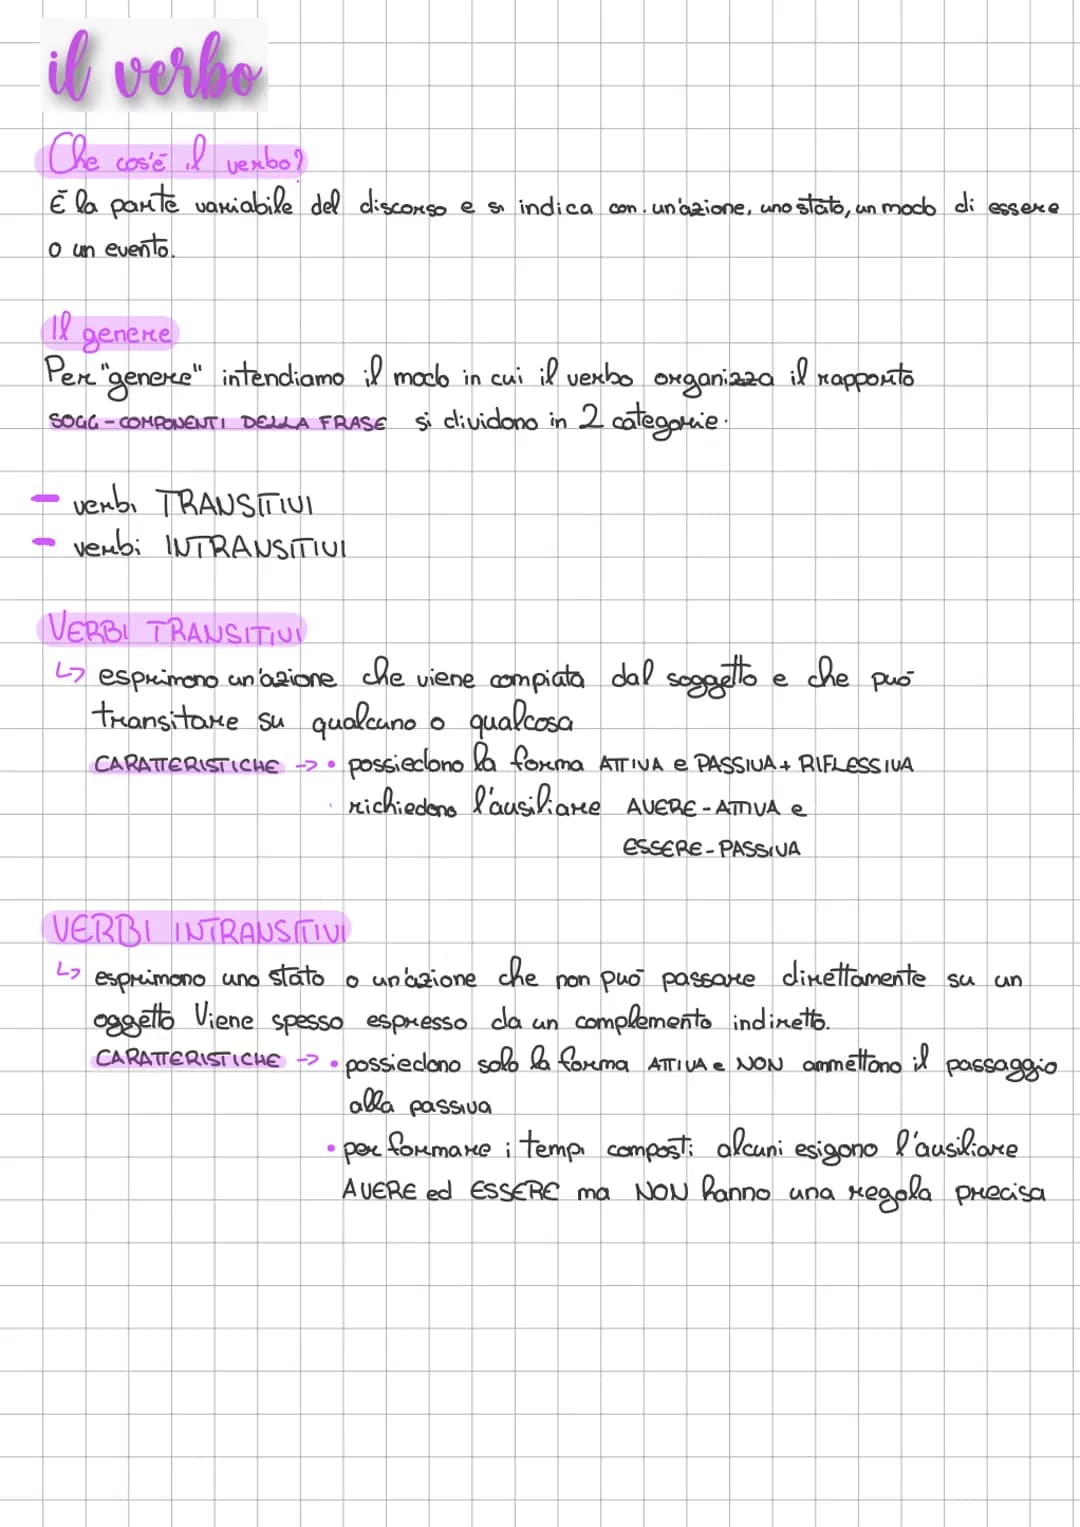 il verbo
Che cos'è il verbo?
È la parte variabile del discorso e si indica con. un'azione, uno stato, un modo di essere
o un evento.
Il genere
Per "genere" intendiamo il modo in cui il verbo organizza il rapporto
SOGG-COMPONENTI DELLA FRASE si dividono in 2 categorie.
- verbi TRANSITIVI
- verbi INTRANSITIVI
VERBI TRANSITIVI
↳ esprimono un'azione che viene compiata dal soggetto e che può
transitare su qualcuno o qualcosa
CARATTERISTICHE -> • possiedono la forma ATTIVA e PASSIVA + RIFLESSIVA
• richiedono l'ausiliare AVERE-ATTIVA e
ESSERE-PASSIVA
VERBI INTRANSITIVI
↳ esprimono uno stato o un'azione che non può passare direttamente su un
oggetto Viene spesso espresso da un complemento indiretto.
CARATTERISTICHE -> • possiedono solo la forma ATTIVA e NON ammettono il passaggio
alla passiva
• per formare i tempi composti alcuni esigono l'ausiliare
AVERE ed ESSERE ma NON hanno una regola precisa